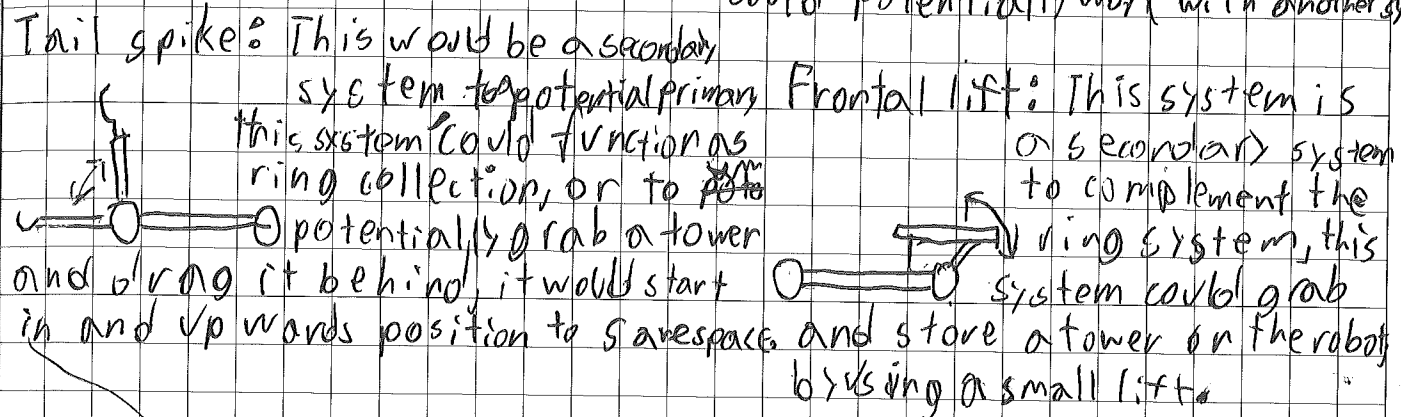 could potentially work with another sy
Tail spike: This would be a secondary
system to a potential primary
this system could function as
ring collection, or to
potentially grab a tower
and drag it behind, it would start
in and upwards position to save space.
Frontal lift: This system is
a secondary system
to complement the
ring system, this
system could grab
and store a tower on the robot
by using a small lift.